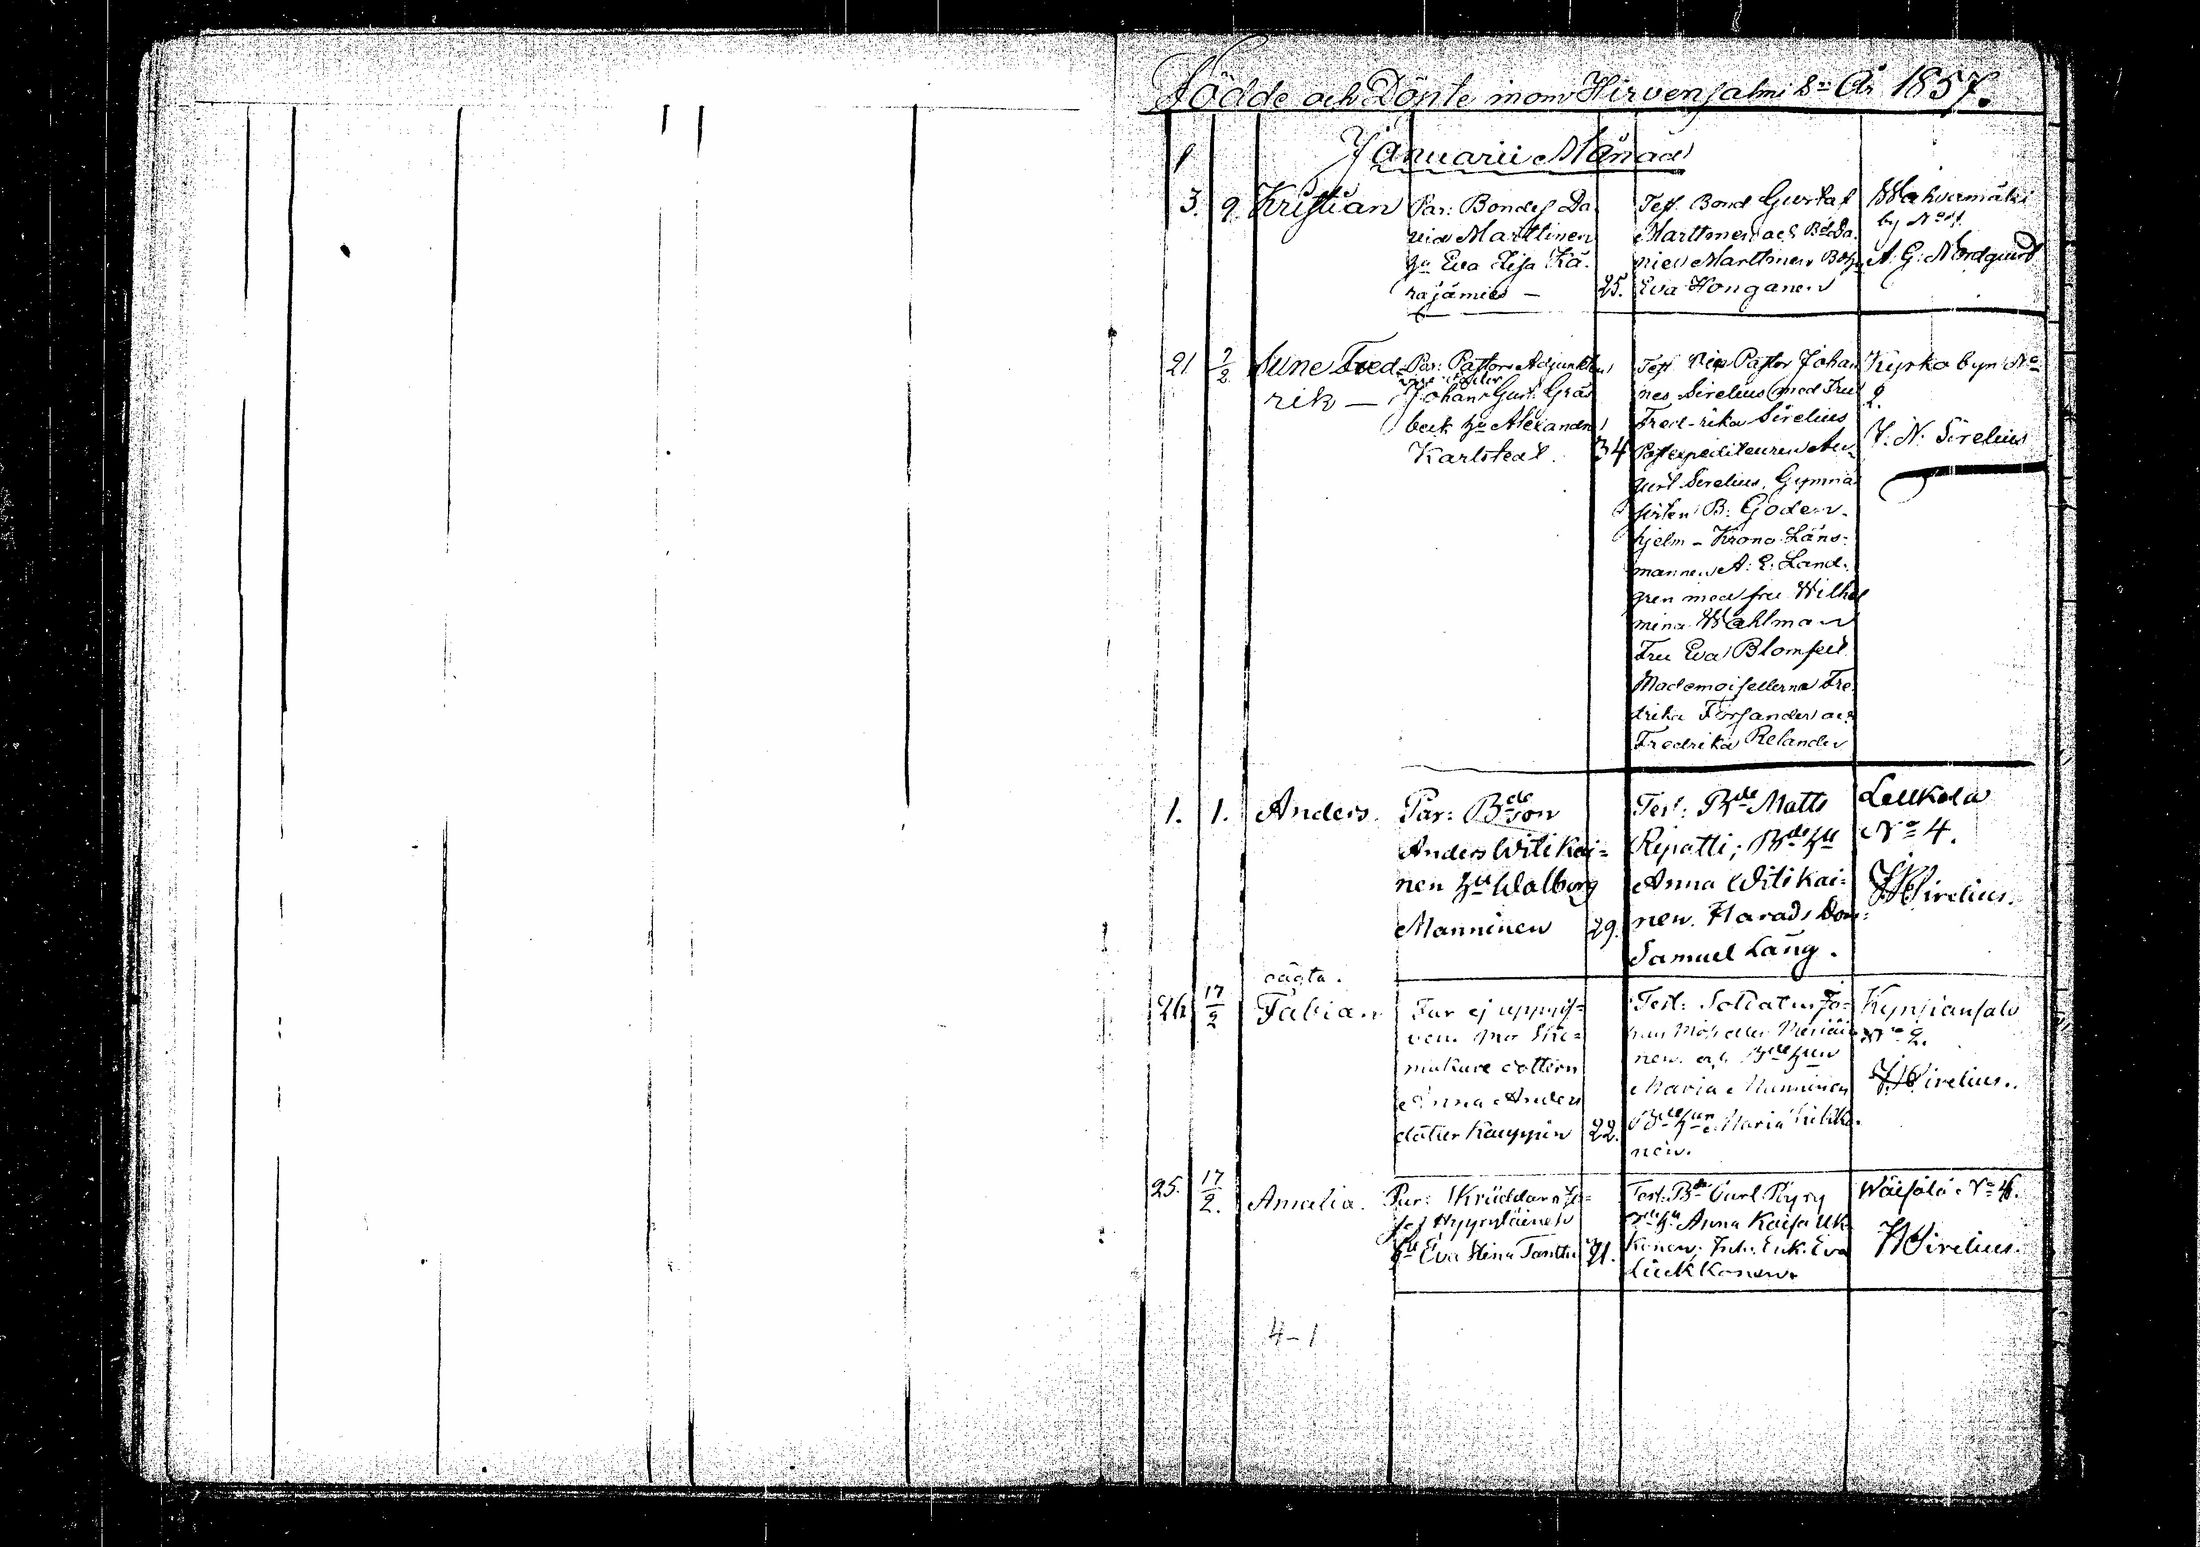 Födde och Döpte inom Hirvensalmi Sn År 1857.
Januarii Månad
3. 9. Kristian
Par: Bondes Da
vid Marttinen
hu Eva Lisa Kä-
räjämies — 25.
Test. Bond Gustaf
Marttinen och Bde Da-
niel Marttinen Bdehu
Eva Honganen
Wahvamäki
by No 1.
A. G. Nordqvist
21 7/2 Sune Fred-
rik —
Par: Pastors Adjunkten
Johan Gust. Gräs
beck hu Alexandra
Karlstedt. 34
Test Vice Pastor Johan
nes Sirelius med Fru
Fred-rika Sirelius
Postexpediteuren Au-
gust Sirelius, Gymna
sisten B: Goden-
hjelm – Krono Läns-
mannen A: E: Land-
gren med fru Wilhel
mina Wahlman
Fru Eva Blomfelt
Mademoisellerna Fre
drika Forsander och
Fredrika Relander
Kyrko byn No
2.
J. N. Sirelius
1. 1. Anders.
Par: Bdeson
Anders Witikai=
nen hu Walborg
Manninen 29.
Test: Bde Matts
Ripatti; Bdehu
Anna Witikai=
nen. Härads Dom=
Samuel Lång.
Leukola
No 4.
JN Sirelius.
oägta.
26 17/2 Fabian
Far ej uppgif=
ven. Mo Skо=
makare dottern
Anna Anders
dotter Kauppin 22.
Test: Soldaten Jo=
han
nen och Bdehun
Maria Manninen
Bdehun Maria
nen.
Kynsiansalo
No 2.
JN Sirelius.
25. 17/2. Amalia.
Par: Skräddarn Jo=
sef Hyyryläinen
hu Eva Stina Tanttu 21.
Test: Bde Carl Pyry
Bdehu Anna Kaisa Uk
konen. Enk. Eva
Liukkonen.
Wäisälä No 4.
JN Sirelius.
4–1